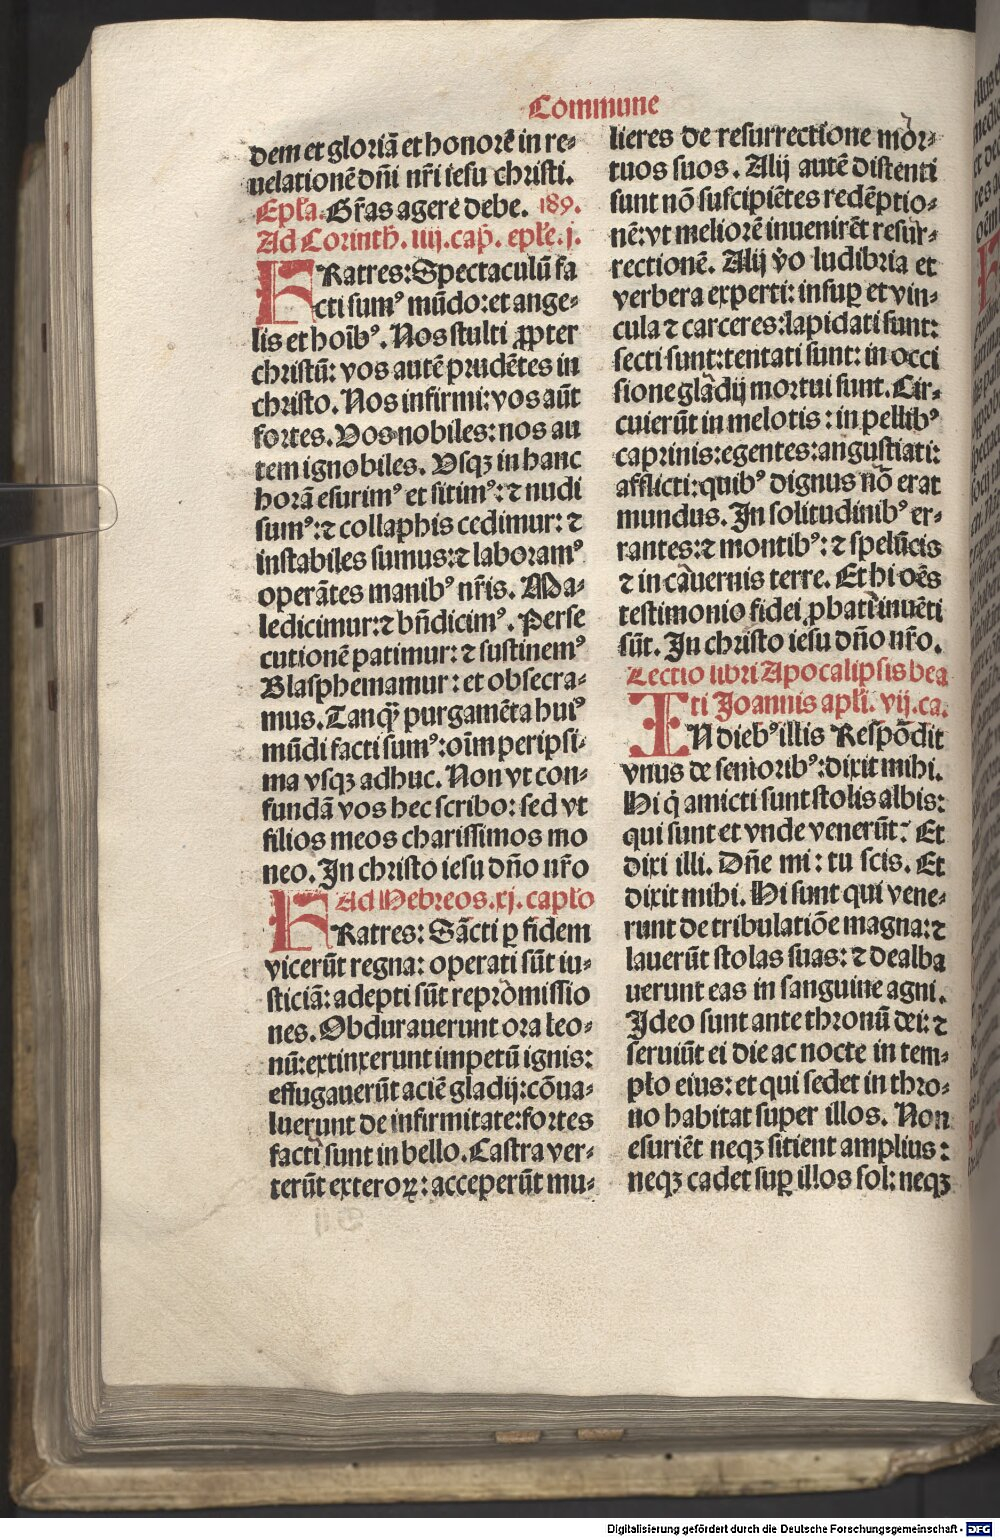 Commune
dem et gloriā et honorē in re⸗
uelationē dn̄i nr̄i iesu christi.
Epl̄a. Gr̄as agere debe. 189.
Ad Corinth̄. iiij. cap̄. epl̄e. j.
FRatres: Spectaculū fa
cti sumꝰ mūdo: et ange⸗
lis et hoībꝰ. Nos stulti ꝓpter
christū: vos autē prudētes in
christo. Nos infirmi: vos aūt
fortes. Vos nobiles: nos au
tem ignobiles. Vsqꝫ in hanc
horā esurimꝰ et sitimꝰ: ⁊ nudi
sumꝰ: ⁊ collaphis cedimur: ⁊
instabiles sumus: ⁊ laboramꝰ
operātes manibꝰ nr̄is. Ma⸗
ledicimur: ⁊ bn̄dicimꝰ. Perse
cutionē patimur: ⁊ sustinemꝰ
Blasphemamur: et obsecra⸗
mus. Tanqȝ̄ purgamēta huiꝰ
mūdi facti sumꝰ: oīm peripsi⸗
ma vsqꝫ adhuc. Non vt con⸗
fundā vos hec scribo: sed vt
filios meos charissimos mo
neo. In christo iesu dn̄o nr̄o
Ad Hebreos. xj. capl̄o
FRatres: Sācti ꝑ fidem
vicerūt regna: operati sūt iu⸗
sticiā: adepti sūt repromissio
nes. Obdurauerunt ora leo⸗
nū: extinxerunt impetū ignis:
effugauerūt aciē gladij: cōua⸗
luerunt de infirmitate: fortes
facti sunt in bello. Castra ver⸗
terūt exteroꝝ: acceperūt mu⸗
lieres de resurrectione mor⸗
tuos suos. Alij autē distenti
sunt nō suscipiētes redēptio⸗
nē: vt meliorē inuenirēt resur⸗
rectionē. Alij v̊o ludibria et
verbera experti: insuꝑ et vin⸗
cula ⁊ carceres: lapidati sunt:
secti sunt: tentati sunt: in occi
sione gladij mortui sunt. Cir⸗
cuierūt in melotis: in pellibꝰ
caprinis: egentes: angustiati:
afflicti: quibꝰ dignus nō erat
mundus. In solitudinibꝰ er⸗
rantes: ⁊ montibꝰ: ⁊ spelūcis
⁊ in cauernis terre. Et hi oēs
testimonio fidei ꝓbati inuēti
sūt. In christo iesu dn̄o nr̄o.
Lectio libri Apocalipsis bea
ti Joannis apl̄i. vij. ca.
IN diebꝰ illis Respōdit
vnus de senioribꝰ: dixit mihi.
Hi q̇ amicti sunt stolis albis:
qui sunt et vnde venerūt: Et
dixi illi. Dn̄e mi: tu scis. Et
dixit mihi. Hi sunt qui vene⸗
runt de tribulatiōe magna: ⁊
lauerūt stolas suas: ⁊ dealba
uerunt eas in sanguine agni.
Ideo sunt ante thronū dei: ⁊
seruiūt ei die ac nocte in tem⸗
pl̄o eius: et qui sedet in thro⸗
no habitat super illos. Non
esuriēt neqꝫ sitient amplius:
neqꝫ cadet suꝑ illos sol: neqꝫ
Digitalisierung gefördert durch die Deutsche Forschungsgemeinschaft - DFG